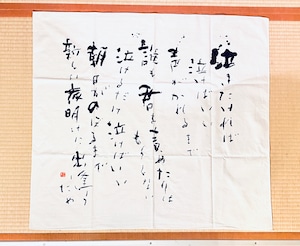 泣きたければ
泣けばいい
声かれるまで
誰も君を責めたりは
もうしない
泣けるだけ泣けばいい
朝日がのぼるまで
新しい夜明けに出会う
ため